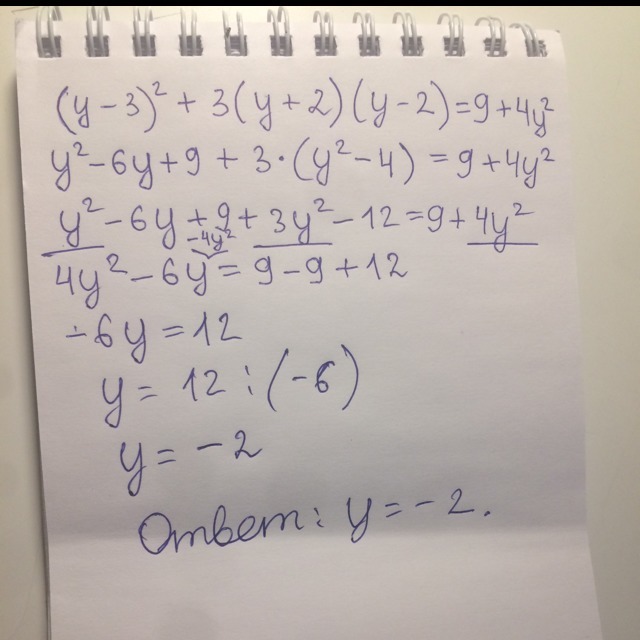 (y-3)² + 3(y+2)(y-2)=9+4y²
y²-6y+9 + 3·(y²-4) = 9+4y²
y²-6y+9+3y²-12=9+4y²
-4y²
4y²-6y = 9-9+12
-6y = 12
y = 12 : (-6)
y = -2
Ответ: y = -2.